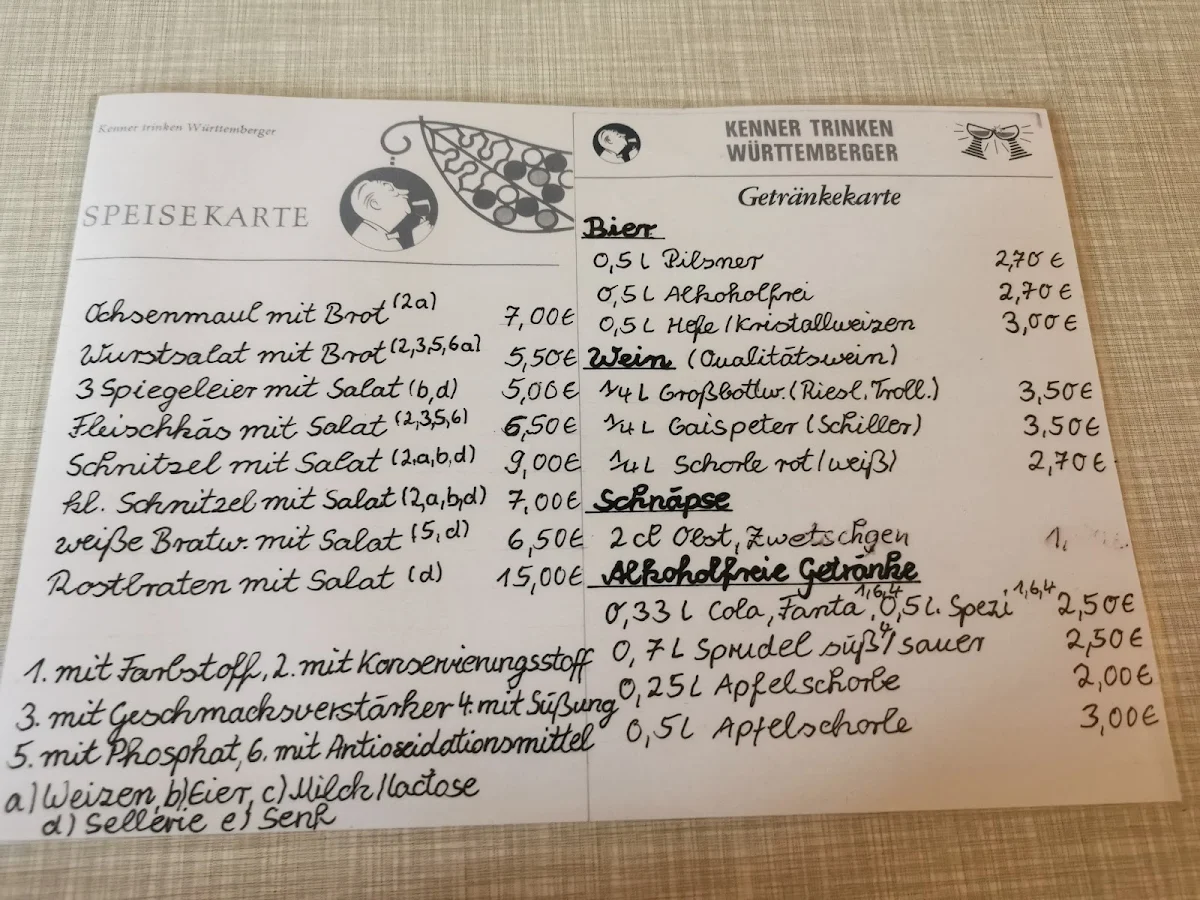 Kenner trinken Württemberger
SPEISEKARTE
Ochsenmaul mit Brot (2a) 7,00€
Wurstsalat mit Brot (2,3,5,6a) 5,50€
3 Spiegeleier mit Salat (b,d) 5,00€
Fleischkäs mit Salat (2,3,5,6) 6,50€
Schnitzel mit Salat (2,a,b,d) 9,00€
kl. Schnitzel mit Salat (2,a,b,d) 7,00€
weiße Bratw. mit Salat (5,d) 6,50€
Rostbraten mit Salat (d) 15,00€
1. mit Farbstoff, 2. mit Konservierungsstoff
3. mit Geschmacksverstärker 4. mit Süßung
5. mit Phosphat, 6. mit Antioxidationsmittel
a) Weizen, b) Eier, c) Milch/lactose
d) Sellerie e) Senf
KENNER TRINKEN
WÜRTTEMBERGER
Getränkekarte
Bier
0,5 L Pilsner 2,70 €
0,5 L Alkoholfrei 2,70 €
0,5 L Hefe/Kristallweizen 3,00€
Wein (Qualitätswein)
1/4 L Großbottw. (Riesl. Troll.) 3,50€
1/4 L Gaispeter (Schiller) 3,50€
1/4 L Schorle rot/weiß) 2,70€
Schnäpse
2 cl Obst, Zwetschgen 1,
Alkoholfreie Getränke
0,33 L Cola, Fanta 1,6,4, 0,5 L. Spezi 1,6,4 2,50€
0,7 L Sprudel süß 4/sauer 2,50€
0,25 L Apfelschorle 2,00€
0,5 L Apfelschorle 3,00€